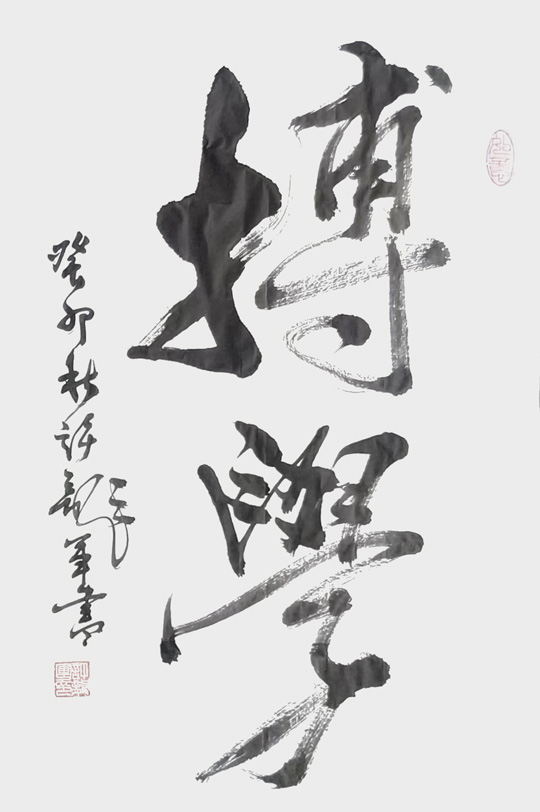 博學
癸卯秋許龍軍書